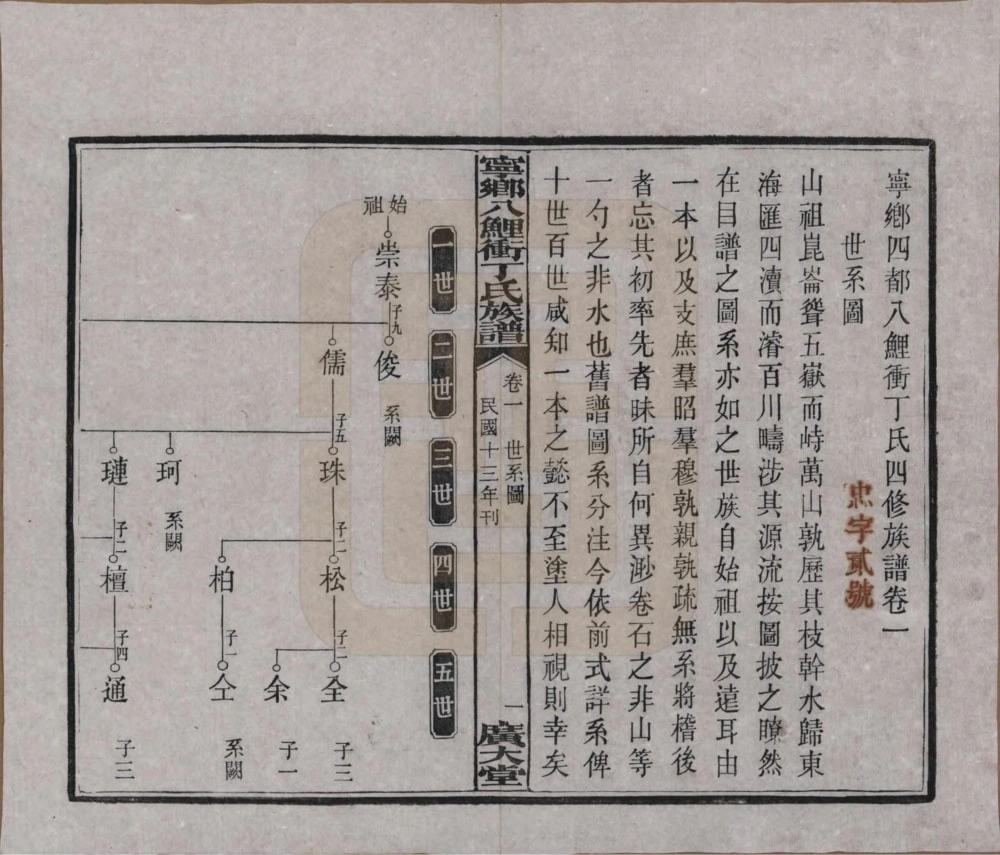 寧鄉四都八鯉衝丁氏四修族譜卷一
忠字貳號
世系圖
山祖崑崙聳五嶽而峙萬山孰歷其枝幹水歸東
海匯四瀆而濬百川疇涉其源流按圖披之瞭然
在目譜之圖系亦如之世族自始祖以及遠耳由
一本以及支庶羣昭羣穆孰親孰疏無系將稽後
者忘其初率先者昧所自何異渺卷石之非山等
一勺之非水也舊譜圖系分注今依前式詳系俾
十世百世咸知一本之懿不至塗人相視則幸矣
寧鄉八鯉衝丁氏族譜
卷一 世系圖
民國十三年刊
一
廣大堂
一世
二世
三世
四世
五世
始祖
崇泰
子九
俊
系闕
儒
子五
珠
子二
松
子二
全
子三
余
子一
柏
子一
仝
系闕
珂
系闕
璉
子二
檀
子四
通
子三